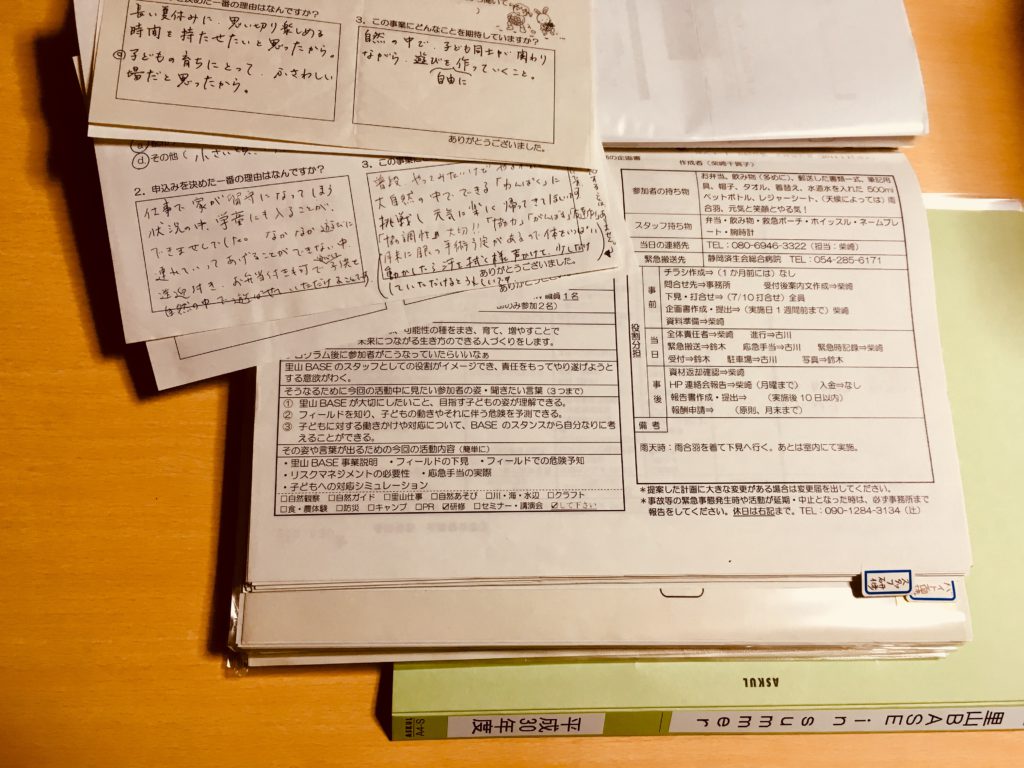 を決めた一番の理由はなんですか?
長い夏休みに、思い切り楽しめる
時間を持たせたいと思ったから。
子どもの育ちにとって、ふさわしい
場だと思ったから。
3. この事業にどんなことを期待していますか?
自然の中で、子ども同士が関わり
ながら、遊びを作っていくこと。
自由に
ありがとうございました。
ⓓ その他
2. 申込みを決めた一番の理由はなんですか?
仕事で家が留守になってしまう
状況の中、学童にも入ることが、
できませんでした。なかなか遊びに
連れていってあげることができない中、
送迎付き、お弁当付きで子供を
自然の中で
3. この事業に
普段 やってみたいけど
大自然の中でできる「わんぱく」に
挑戦し 元気に楽に 帰ってきてほしい
「協調性」大切!! 「協力」「がんばる」
ありがとうございました。
職員1名
のみ参加2名)
可能性の種をまき、育て、増やすことで
未来につながる生き方のできる人づくりをします。
ログラム後に参加者がこうなっていたらいいなぁ
里山BASEのスタッフとしての役割がイメージでき、責任をもってやり遂げようと
する意欲がわく。
そうなるために今回の活動中に見たい参加者の姿・聞きたい言葉(3つまで)
① 里山BASEが大切にしたいこと、目指す子どもの姿が理解できる。
② フィールドを知り、子どもの動きやそれに伴う危険を予測できる。
③ 子どもに対する働きかけや対応について、BASEのスタンスから自分なりに考
えることができる。
その姿や言葉が出るための今回の活動内容(簡単に)
・里山BASE事業説明 ・フィールドの下見 ・フィールドでの危険予知
・リスクマネジメントの必要性 ・応急手当の実際
・子どもへの対応シミュレーション
□自然観察 □自然ガイド □里山仕事 □自然あそび □川・海・水辺 □クラフト
□食・農体験 □防災 □キャンプ □PR ☑研修 □セミナー・講演会 ☑して下さい
の企画書 作成者(柴崎千賀子)
参加者の持ち物
お弁当、飲み物(多めに)、郵送した書類一式、筆記用
具、帽子、タオル、着替え、水道水を入れた500ml
ペットボトル、レジャーシート、(天候によっては)雨
合羽、元気と笑顔とやる気!
スタッフ持ち物
弁当・飲み物・救急ポーチ・ホイッスル・ネームプレ
ート・腕時計
当日の連絡先 TEL:080-6946-3322(担当:柴崎)
緊急搬送先 静岡済生会総合病院 TEL:054-285-6171
役割分担
事前
チラシ作成⇒(1か月前には)なし
問合せ先⇒事務所 受付後案内文作成⇒柴崎
下見・打合せ⇒(7/10打合せ)全員
企画書作成・提出⇒(実施日1週間前まで)柴崎
資料準備⇒柴崎
当日
全体責任者⇒柴崎 進行⇒古川
緊急搬送⇒鈴木 応急手当⇒古川 緊急時記録⇒柴崎
受付⇒鈴木 駐車場⇒古川 写真⇒鈴木
事後
資材返却確認⇒柴崎
HP連絡会報告⇒柴崎(月曜まで) 入金⇒なし
報告書作成・提出⇒ (実施後10日以内)
報酬申請⇒ (原則、月末まで)
備考
雨天時:雨合羽を着て下見へ行く。あとは室内にて実施。
*提案した計画に大きな変更がある場合は変更届を出してください。
*事故等の緊急事態発生時や活動が延期・中止となった時は、必ず事務所まで
報告をしてください。休日は右記まで。TEL:090-1284-3134(辻)
スタッフ研修
ASKUL
里山BASE in summer
平成30年度
ASKUL
A4-S